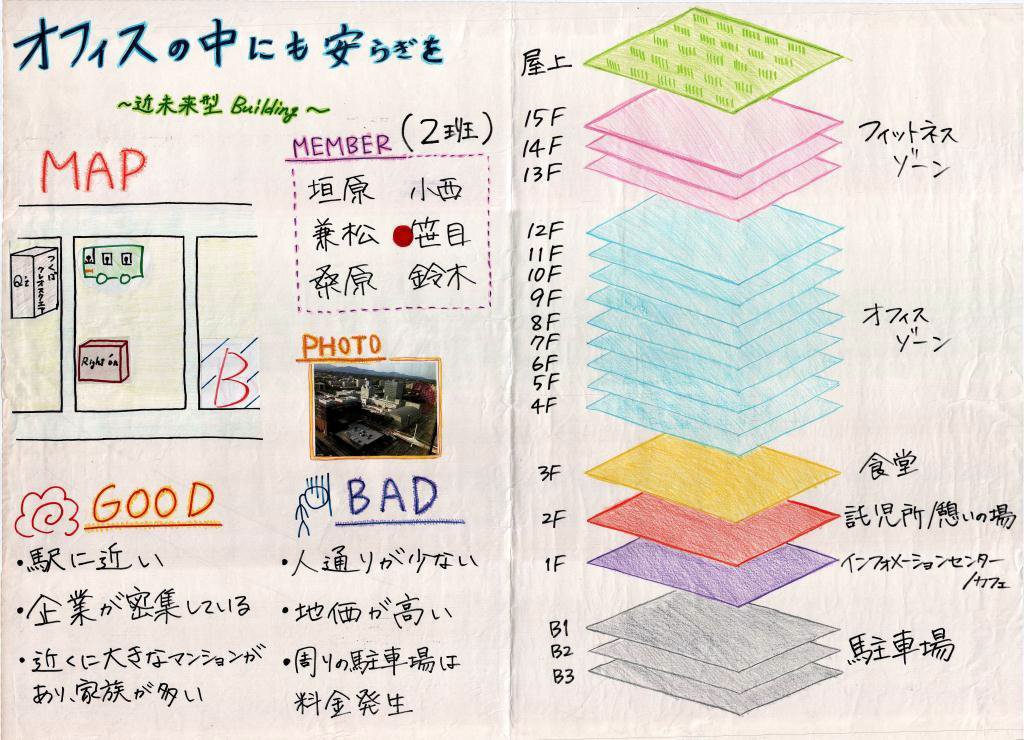 オフィスの中にも安らぎを
～近未来型 Building～
MAP
Q't
つくば
クレオスクエア
Right on
B
MEMBER (2班)
垣原 小西
兼松 笹目
桑原 鈴木
PHOTO
GOOD
・駅に近い
・企業が密集している
・近くに大きなマンションが
あり、家族が多い
BAD
・人通りが少ない
・地価が高い
・周りの駐車場は
料金発生
屋上
15F
14F
13F
フィットネス
ゾーン
12F
11F
10F
9F
8F
7F
6F
5F
4F
オフィス
ゾーン
3F 食堂
2F 託児所/憩いの場
1F インフォメーションセンター
/カフェ
B1
B2
B3
駐車場